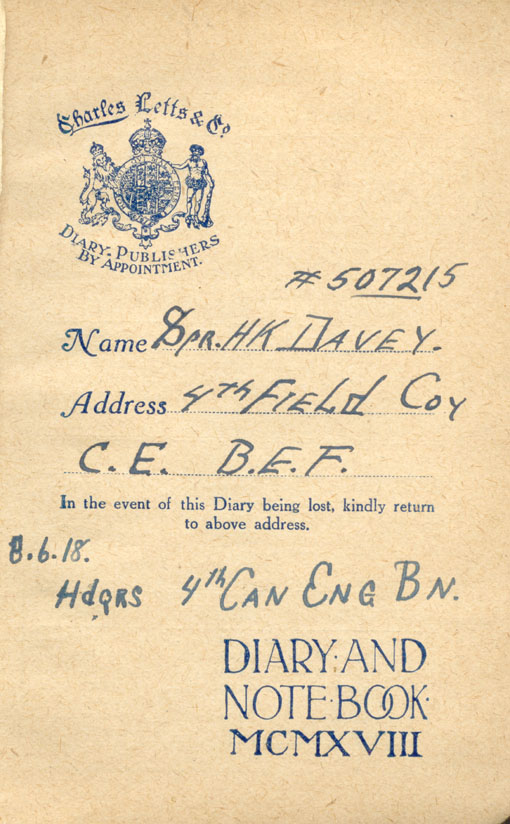 Charles Letts & Co
DIARY PUBLISHERS
BY APPOINTMENT.
# 507215
Name Spr. HK DAVEY.
Address 4th FIELd Coy
C.E. B.E.F.
In the event of this Diary being lost, kindly return
to above address.
8.6.18.
HdQRS 4th CAN ENG BN.
DIARY·AND
NOTE·BOOK·
MCMXVIII